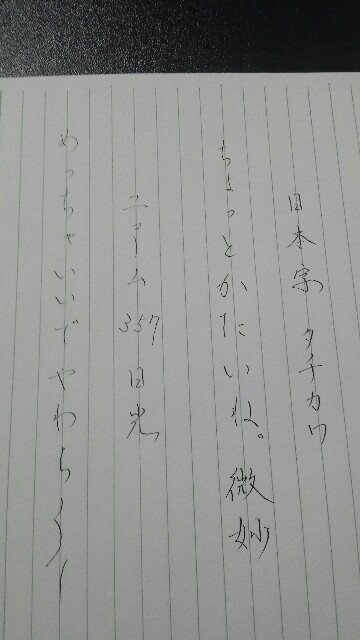 日本字 タチカワ
ちょっとかたいね。微妙
ニーム357 日光
めっちゃいいでやわらく〜